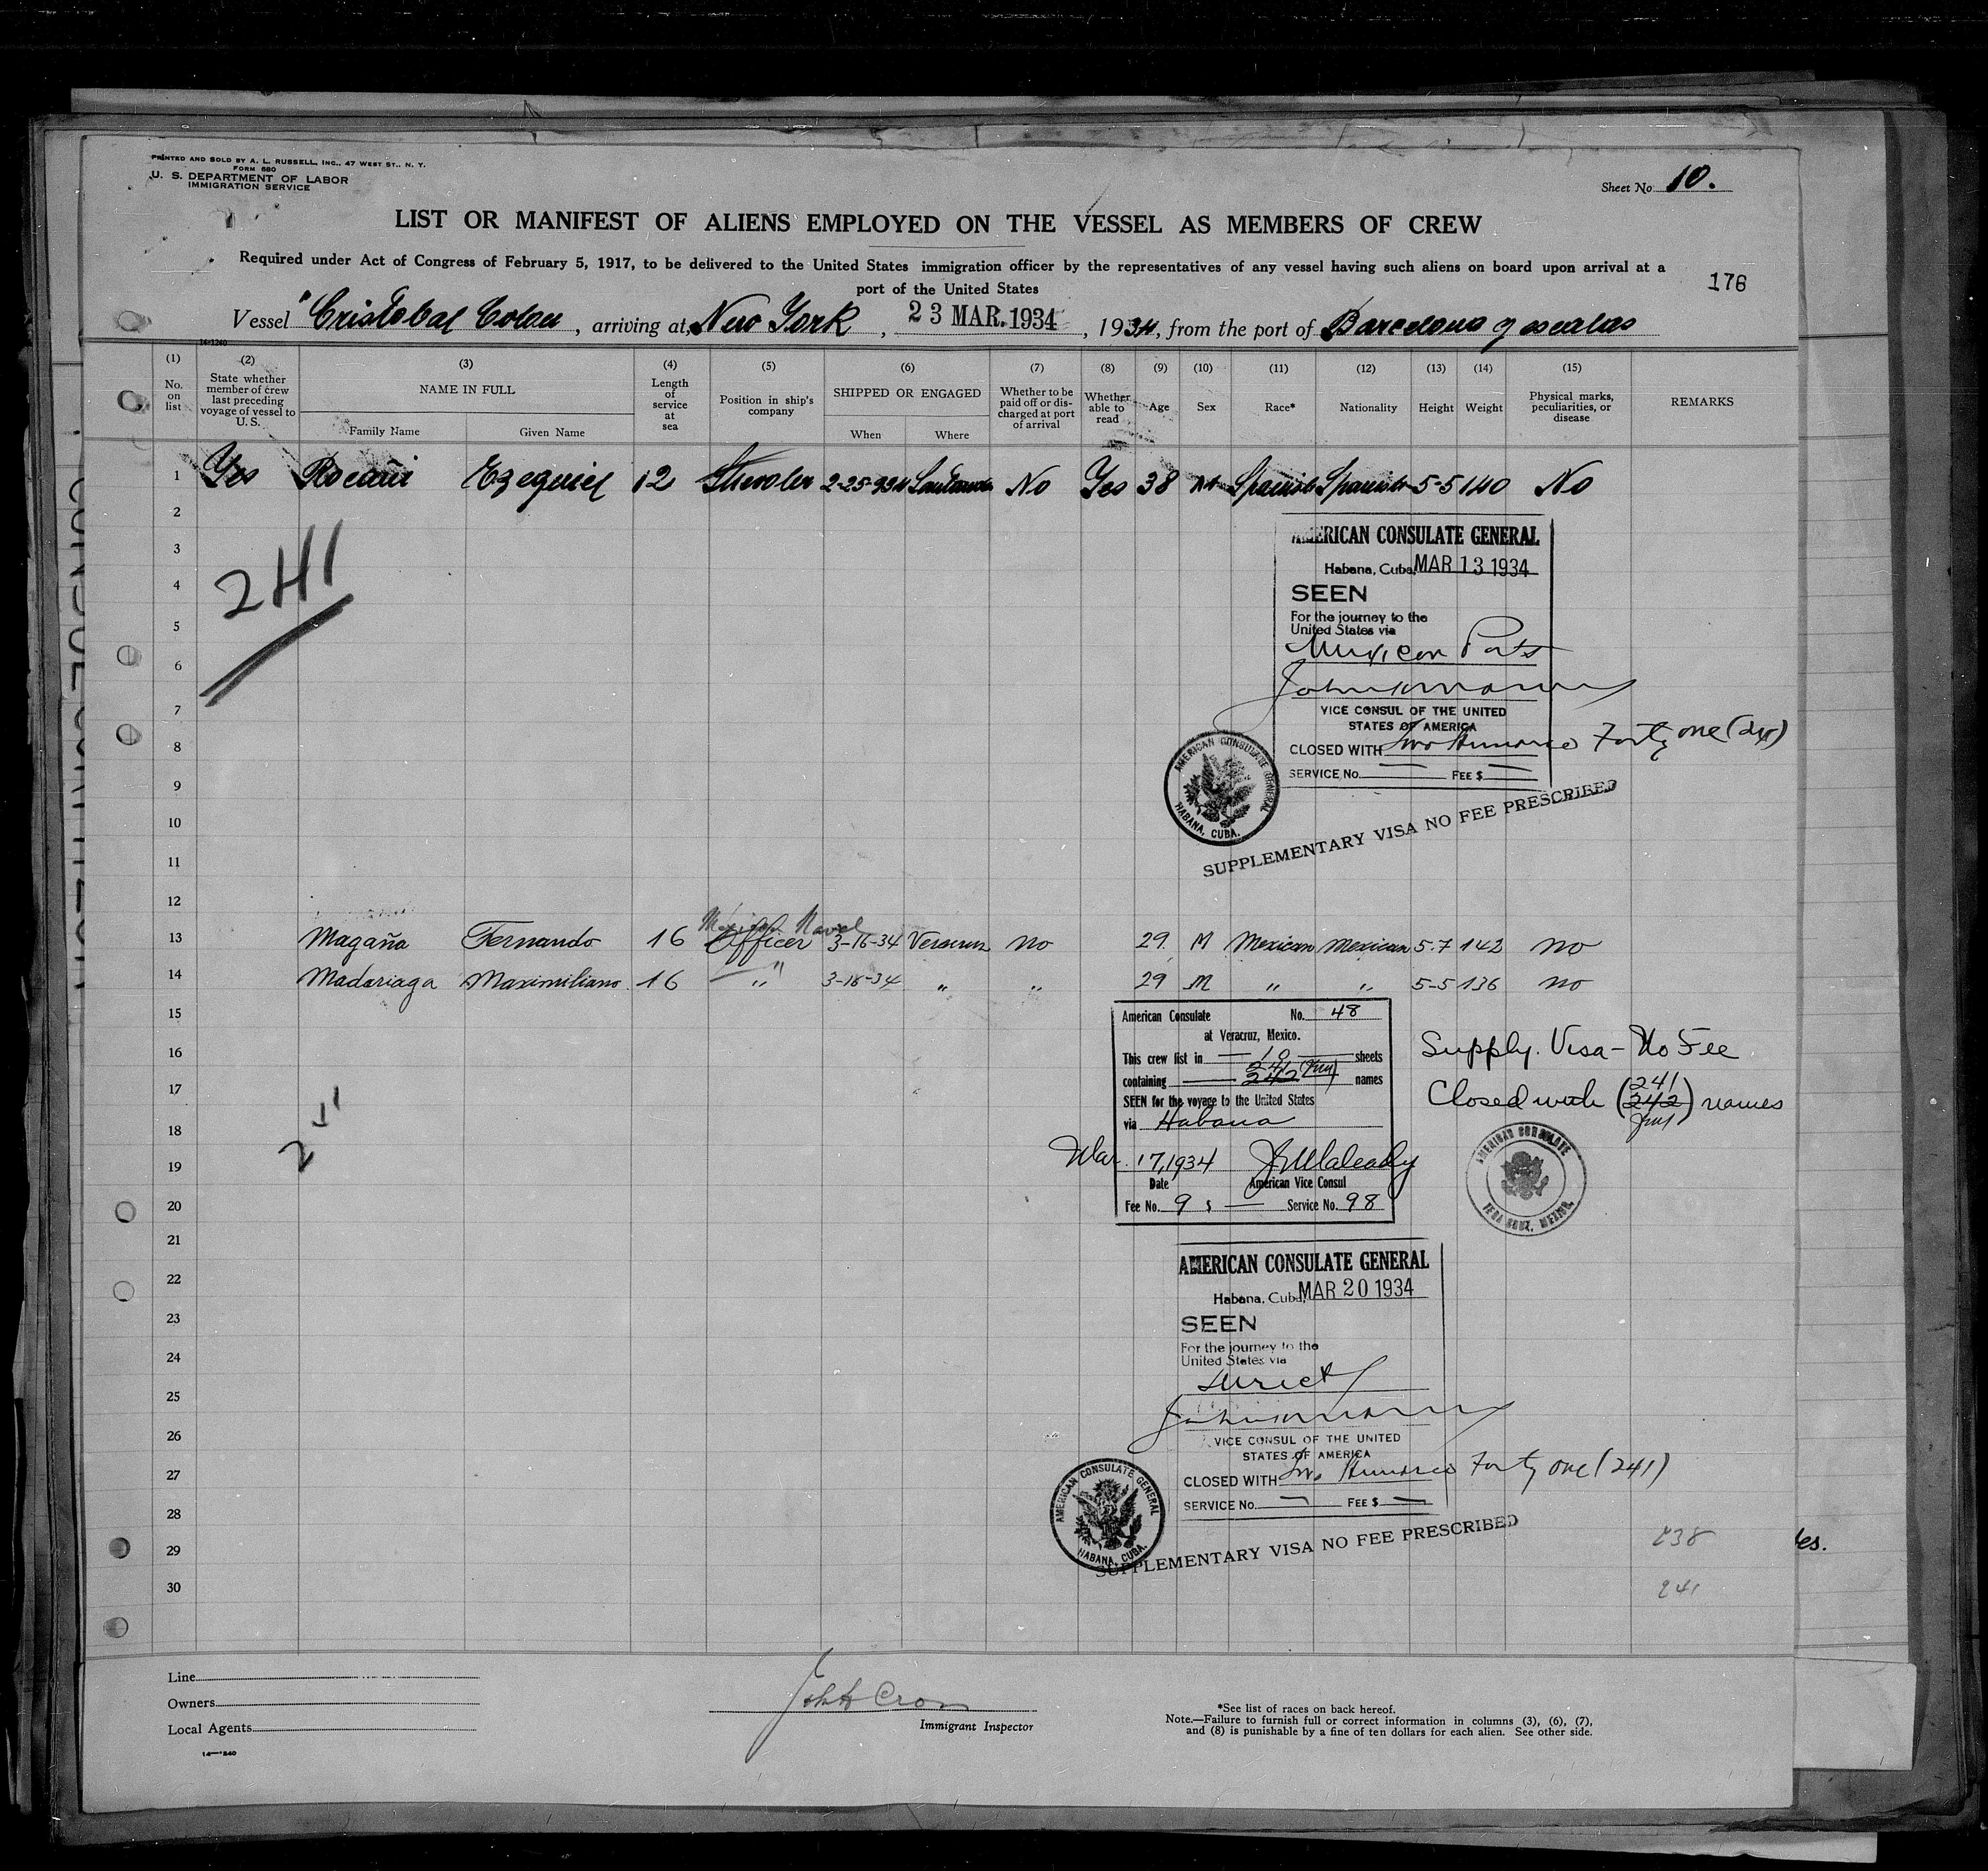 PRINTED AND SOLD BY A. L. RUSSELL, INC., 47 WEST ST., N. Y.
FORM 680
U. S. DEPARTMENT OF LABOR
IMMIGRATION SERVICE
Sheet No 10.
LIST OR MANIFEST OF ALIENS EMPLOYED ON THE VESSEL AS MEMBERS OF CREW
Required under Act of Congress of February 5, 1917, to be delivered to the United States immigration officer by the representatives of any vessel having such aliens on board upon arrival at a
port of the United States
176
Vessel "Cristobal Colon, arriving at New York, 23 MAR. 1934, 1934, from the port of Barcelona y escalas
(1) (2) (3) (4) (5) (6) (7) (8) (9) (10) (11) (12) (13) (14) (15)
No. on list
State whether member of crew last preceding voyage of vessel to U. S.
NAME IN FULL
Family Name
Given Name
Length of service at sea
Position in ship's company
SHIPPED OR ENGAGED
When
Where
Whether to be paid off or discharged at port of arrival
Whether able to read
Age
Sex
Race*
Nationality
Height
Weight
Physical marks, peculiarities, or disease
REMARKS
1 Yes Ezequiel 12 2-25-934 Santander No Yes 38 M Spanish Spanish 5-5 140 No
2
3
4
5
6
7
8
9
10
11
12
241
AMERICAN CONSULATE GENERAL
Habana, Cuba, MAR 13 1934
SEEN
For the journey to the
United States via
Mexican Ports
VICE CONSUL OF THE UNITED
STATES OF AMERICA
CLOSED WITH Two Hundred Forty one (241)
SERVICE No. — FEE $ —
AMERICAN CONSULATE GENERAL HABANA, CUBA.
SUPPLEMENTARY VISA NO FEE PRESCRIBED
Mexican Naval
13 Magaña Fernando 16 Officer 3-16-34 Veracruz no 29 M Mexican Mexican 5-7 142 no
14 Madariaga Maximiliano 16 " 3-16-34 " " 29 M " " 5-5 136 no
15
16
17
18
19
20
21
22
23
24
25
26
27
28
29
30
American Consulate No. 48
at Veracruz, Mexico.
This crew list in — 10 — sheets
241
containing — 242 names
SEEN for the voyage to the United States
via Habana
Mar. 17, 1934
Date American Vice Consul
Fee No. 9 $ — Service No. 98
Supply. Visa - No Fee
241
Closed with (242) names
AMERICAN CONSULATE VERA CRUZ, MEXICO.
AMERICAN CONSULATE GENERAL
Habana, Cuba, MAR 20 1934
SEEN
For the journey to the
United States via
direct
VICE CONSUL OF THE UNITED
STATES OF AMERICA
CLOSED WITH Two Hundred Forty one (241)
SERVICE No. — FEE $ —
AMERICAN CONSULATE GENERAL HABANA, CUBA.
SUPPLEMENTARY VISA NO FEE PRESCRIBED
238
241
es.
Line
Owners
Local Agents
Immigrant Inspector
*See list of races on back hereof.
Note.—Failure to furnish full or correct information in columns (3), (6), (7),
and (8) is punishable by a fine of ten dollars for each alien. See other side.